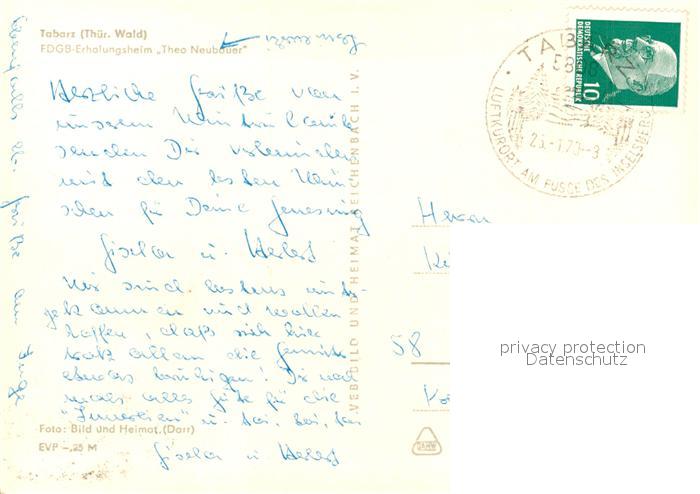 Tabarz (Thür. Wald)
FDGB-Erholungsheim „Theo Neubauer"
Herzliche Grüße von
unserem Winterurlaub
senden Dir
mit den besten Wün-
schen für Deine Genesung
Gisela u. Herbert
Wir sind bestens
gekommen und wollen
hoffen, daß sich hier
trotz allem die Gemüter
etwas beruhigen! Dir noch-
mals alles Gute für die
"Innereien" u.
Gisela u. Herbert
Foto: Bild und Heimat (Darr)
EVP -,25 M
VEB BILD UND HEIMAT REICHENBACH I. V.
TABARZ
58
23.-1.70-8
LUFTKURORT AM FUSSE DES INSELSBERG
DEUTSCHE
DEMOKRATISCHE REPUBLIK
10
Herrn
58
privacy protection
Datenschutz